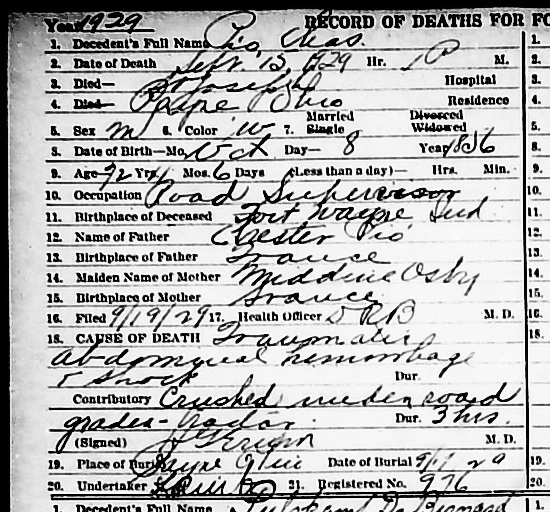 Year 1929 RECORD OF DEATHS FOR FO
1. Decedent's Full Name Pio, Chas. 1.
2. Date of Death Sept. 13, 1929 Hr. 1 P M. 2.
3. Died— St Joseph Hospital 3.
4. Died— Payne Ohio Residence 4.
Married Divorced
5. Sex M 6. Color W 7. Single Widowed 5.
8. Date of Birth—Mo. Oct Day— 8 Year 1856 8.
9. Age 72 Yrs. 11 Mos. 6 Days (Less than a day)— Hrs. Min. 9.
10. Occupation Road Supervisor 10.
11. Birthplace of Deceased Fort Wayne Ind 11.
12. Name of Father Chester Pio 12.
13. Birthplace of Father France 13.
14. Maiden Name of Mother Osby 14.
15. Birthplace of Mother France 15.
16. Filed 9/19/29 17. Health Officer D R B M. D. 16.
18. CAUSE OF DEATH Traumatic 18.
abdominal hemorrhage
+ Shock Dur.
Contributory Crushed under road
grader - tractor Dur. 3 hrs.
(Signed) M. D.
19. Place of Burial Payne Ohio Date of Burial 9/17 29 19.
20. Undertaker 21. Registered No. 976 20.
1. Decedent's Full Name 1.